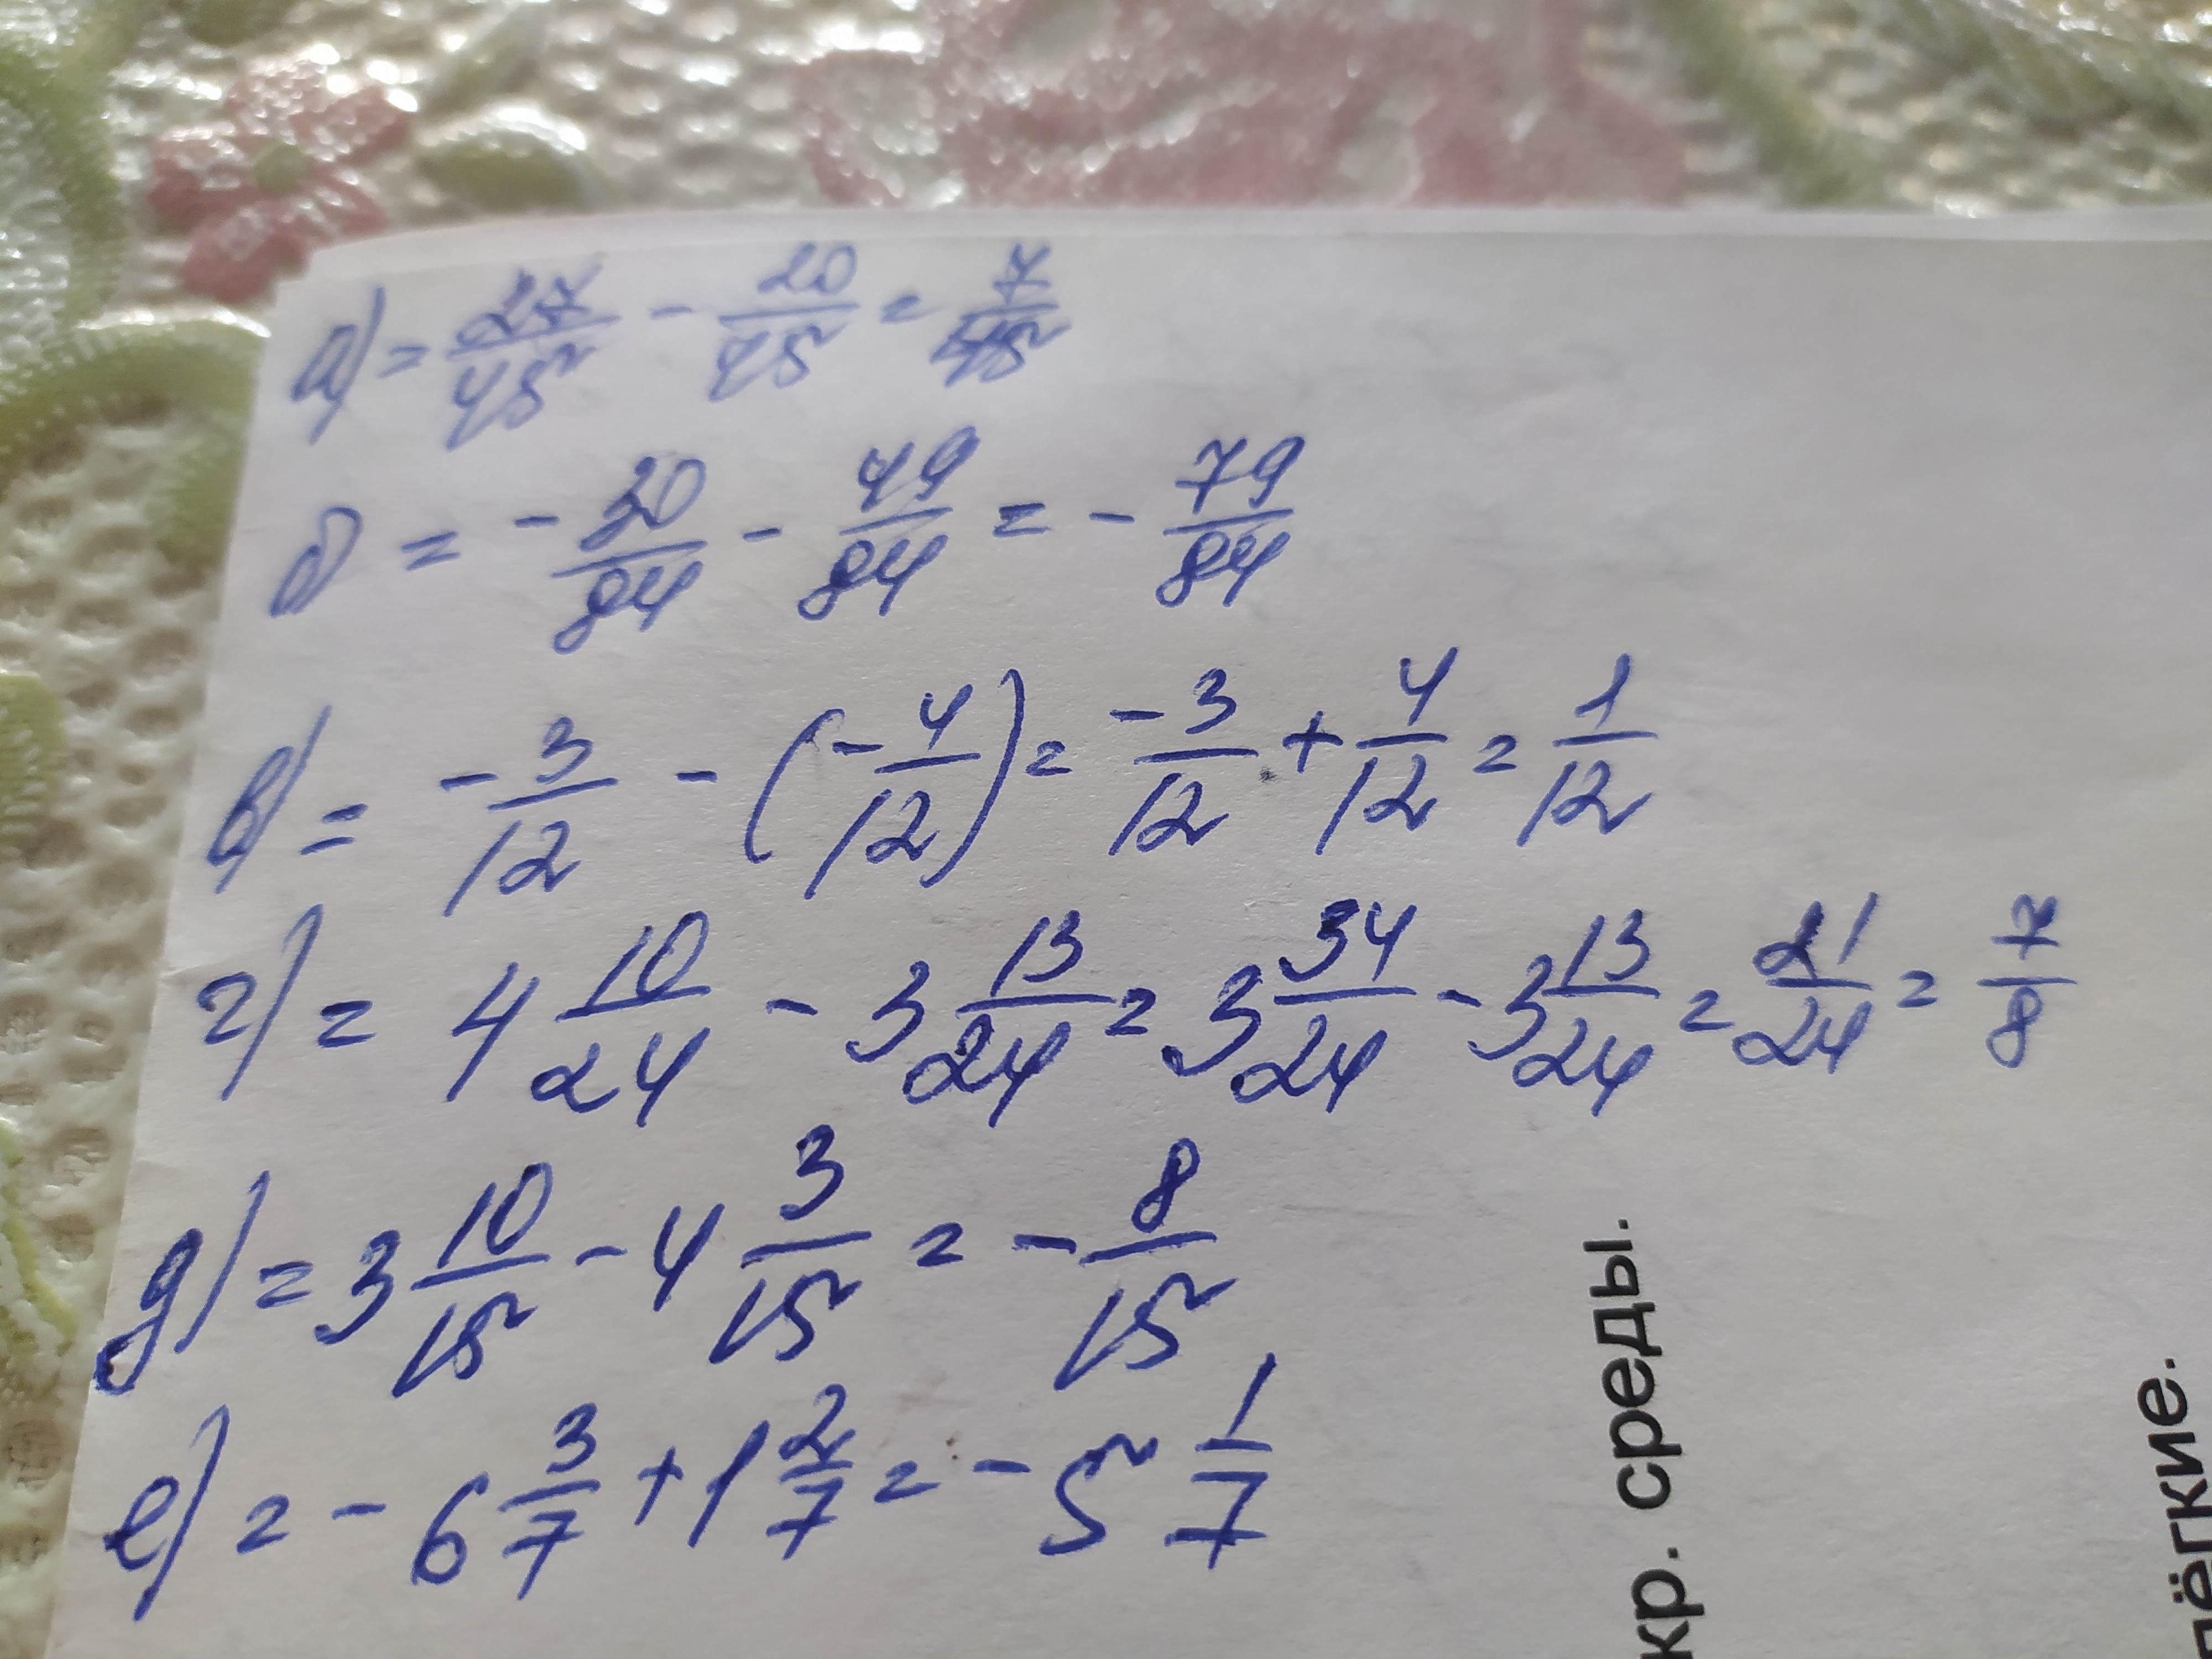 а) = 27/45 - 20/45 = 7/45
б) = - 30/84 - 49/84 = - 79/84
в) = - 3/12 - (- 4/12) = - 3/12 + 4/12 = 1/12
г) = 4 10/24 - 3 13/24 = 3 34/24 - 3 13/24 = 21/24 = 7/8
д) = 3 10/15 - 4 3/15 = - 8/15
е) = - 6 3/7 + 1 2/7 = - 5 1/7
кр. среды.
лёгкие.